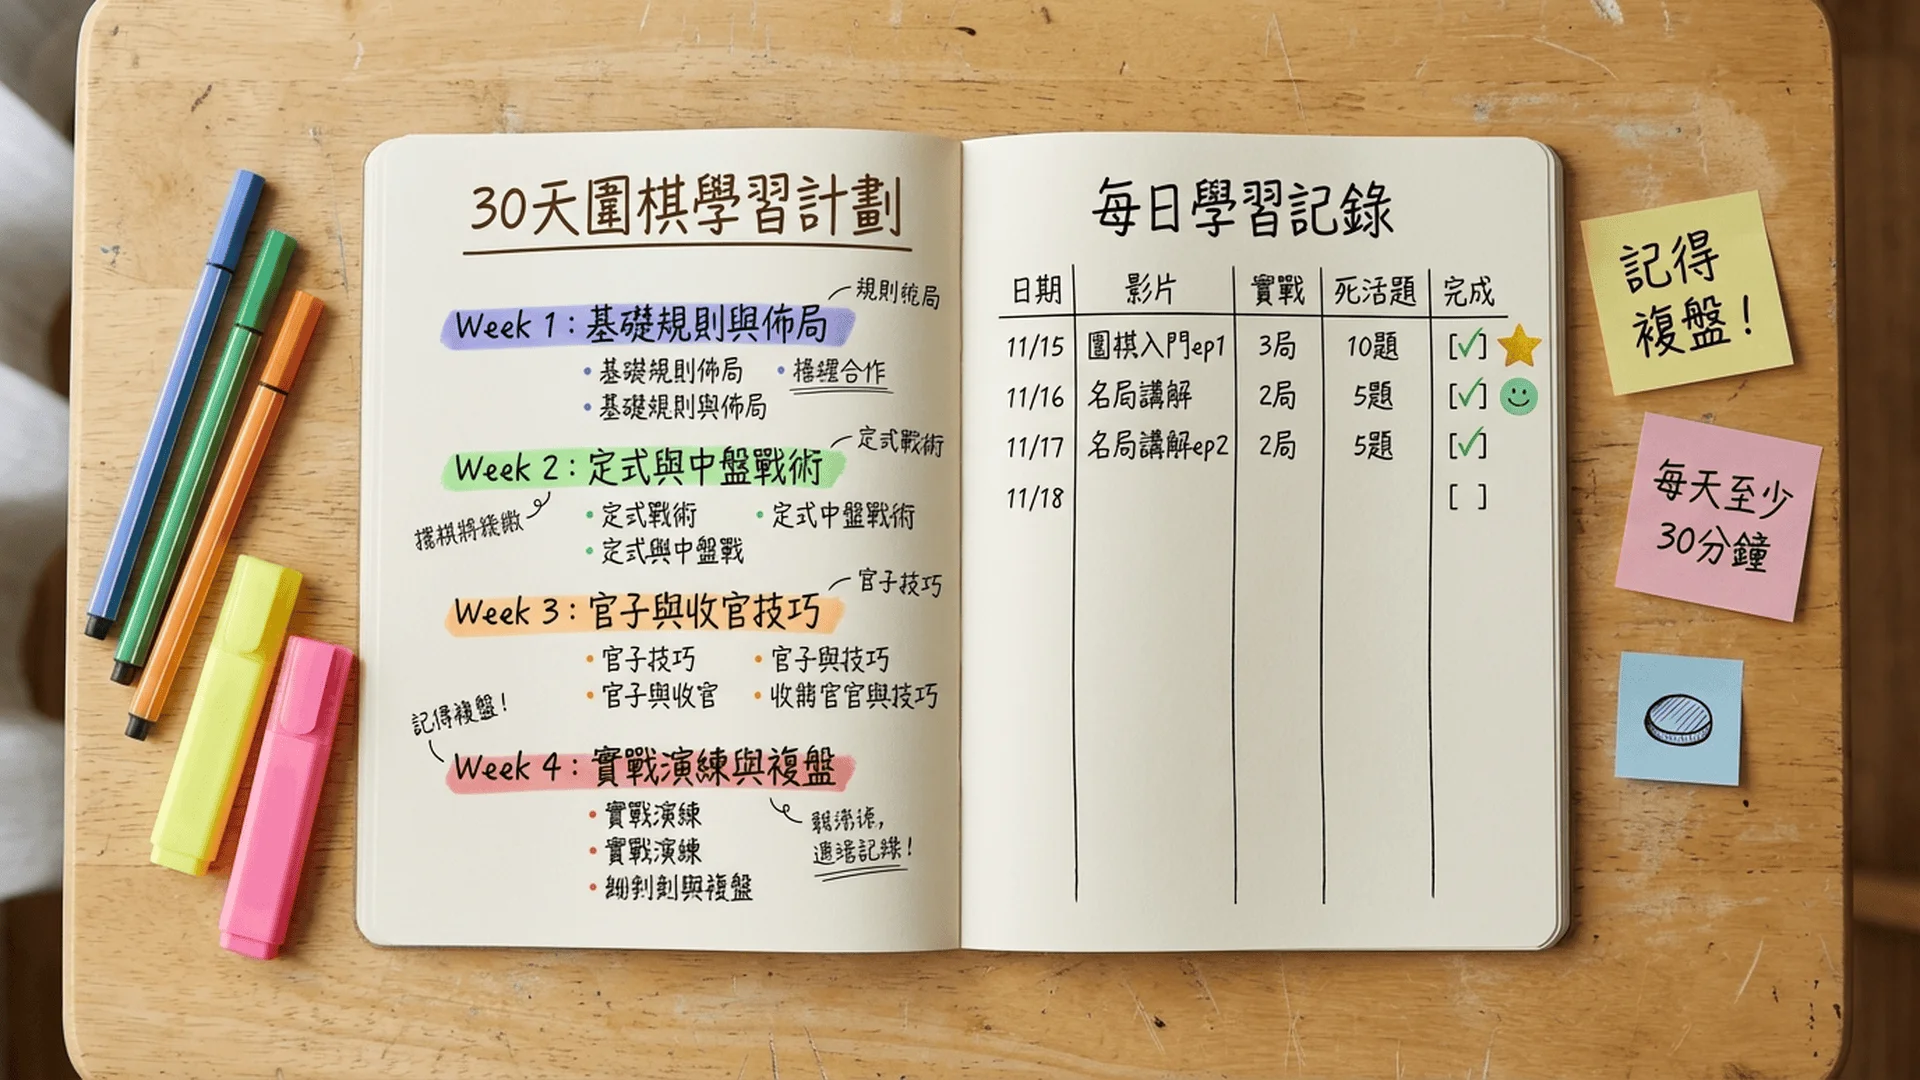 30天圍棋學習計劃
規則
Week 1：基礎規則與佈局
基礎規則佈局
合作
基礎規則與佈局
定式戰術
Week 2：定式與中盤戰術
定式戰術
定式中盤戰術
定式與中盤戰
官子技巧
Week 3：官子與收官技巧
官子技巧
官子與技巧
官子與收官
官官與技巧
記得複盤！
Week 4：實戰演練與複盤
實戰演練
實戰演練
與複盤
記錄！
每日學習記錄
日期 影片 實戰 死活題 完成
11/15 圍棋入門ep1 3局 10題 [✓]
11/16 名局講解 2局 5題 [✓]
11/17 名局講解ep2 2局 5題 [✓]
11/18 [ ]
記得
複盤！
每天至少
30分鐘